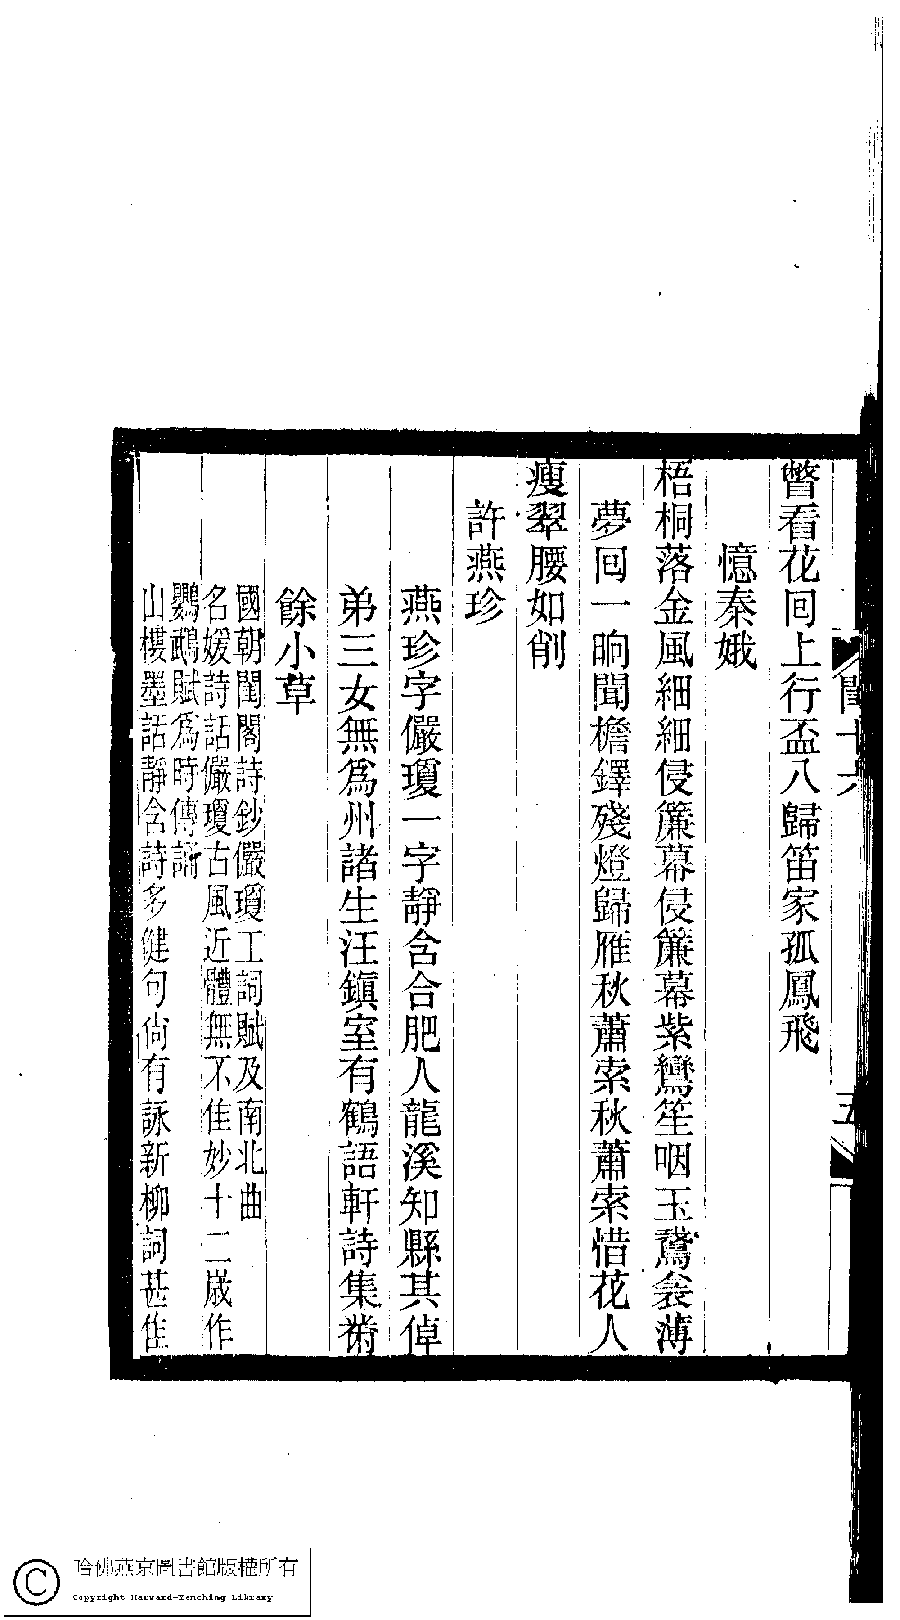 瞥看花回上行盃八歸笛家孤鳳飛
憶秦娥
梧桐落金風細細侵簾幕侵簾幕紫鸞笙咽玉鵞衾薄
夢回一晌聞檐鐸殘燈歸雁秋蕭索秋蕭索惜花人
瘦翠腰如削
許燕珍
燕珍字儼瓊一字靜含合肥人龍溪知縣其倬
弟三女無爲州諸生汪鎭室有鶴語軒詩集黹
餘小草
國朝閨閣詩鈔儼瓊工詞賦及南北曲
名媛詩話儼瓊古風近體無不佳妙十二歲作
鸚鵡賦爲時傳誦
山樓墨話靜含詩多健句尙有詠新柳詞甚佳
閨十六
五
哈佛燕京圖書館版權所有
Copyright Harvard-Yenching Library